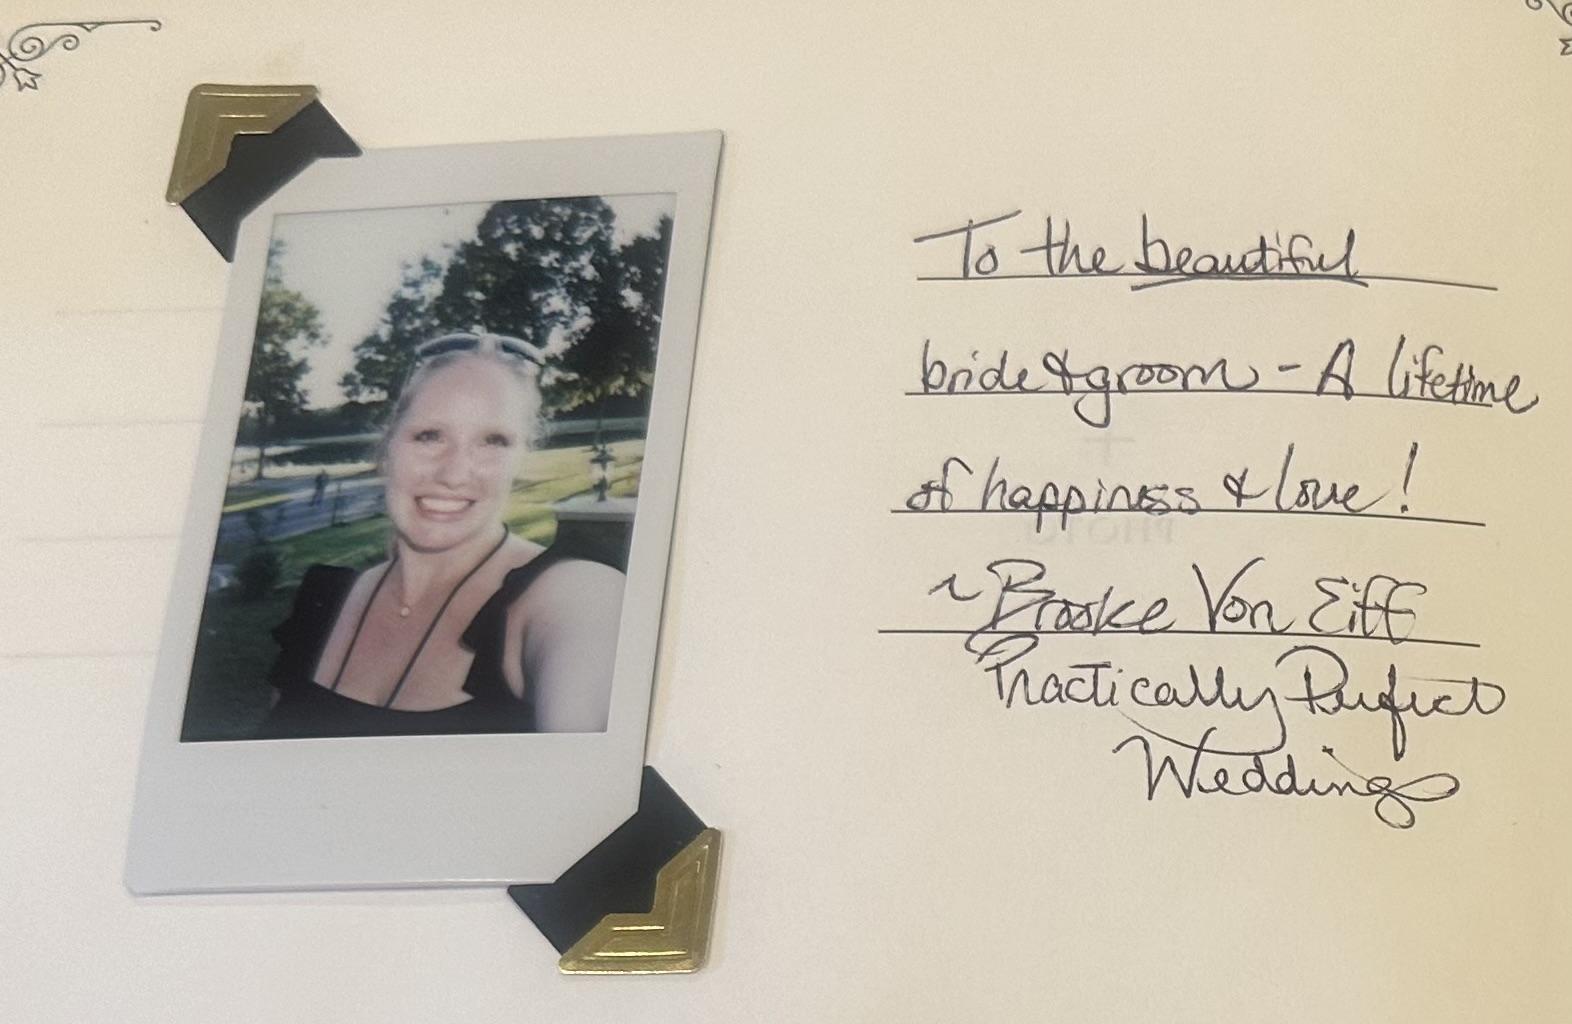 To the beautiful
bride & groom - A lifetime
of happiness & love!
~ Brooke Von Eiff
Practically Perfect
Weddings
PHOTO